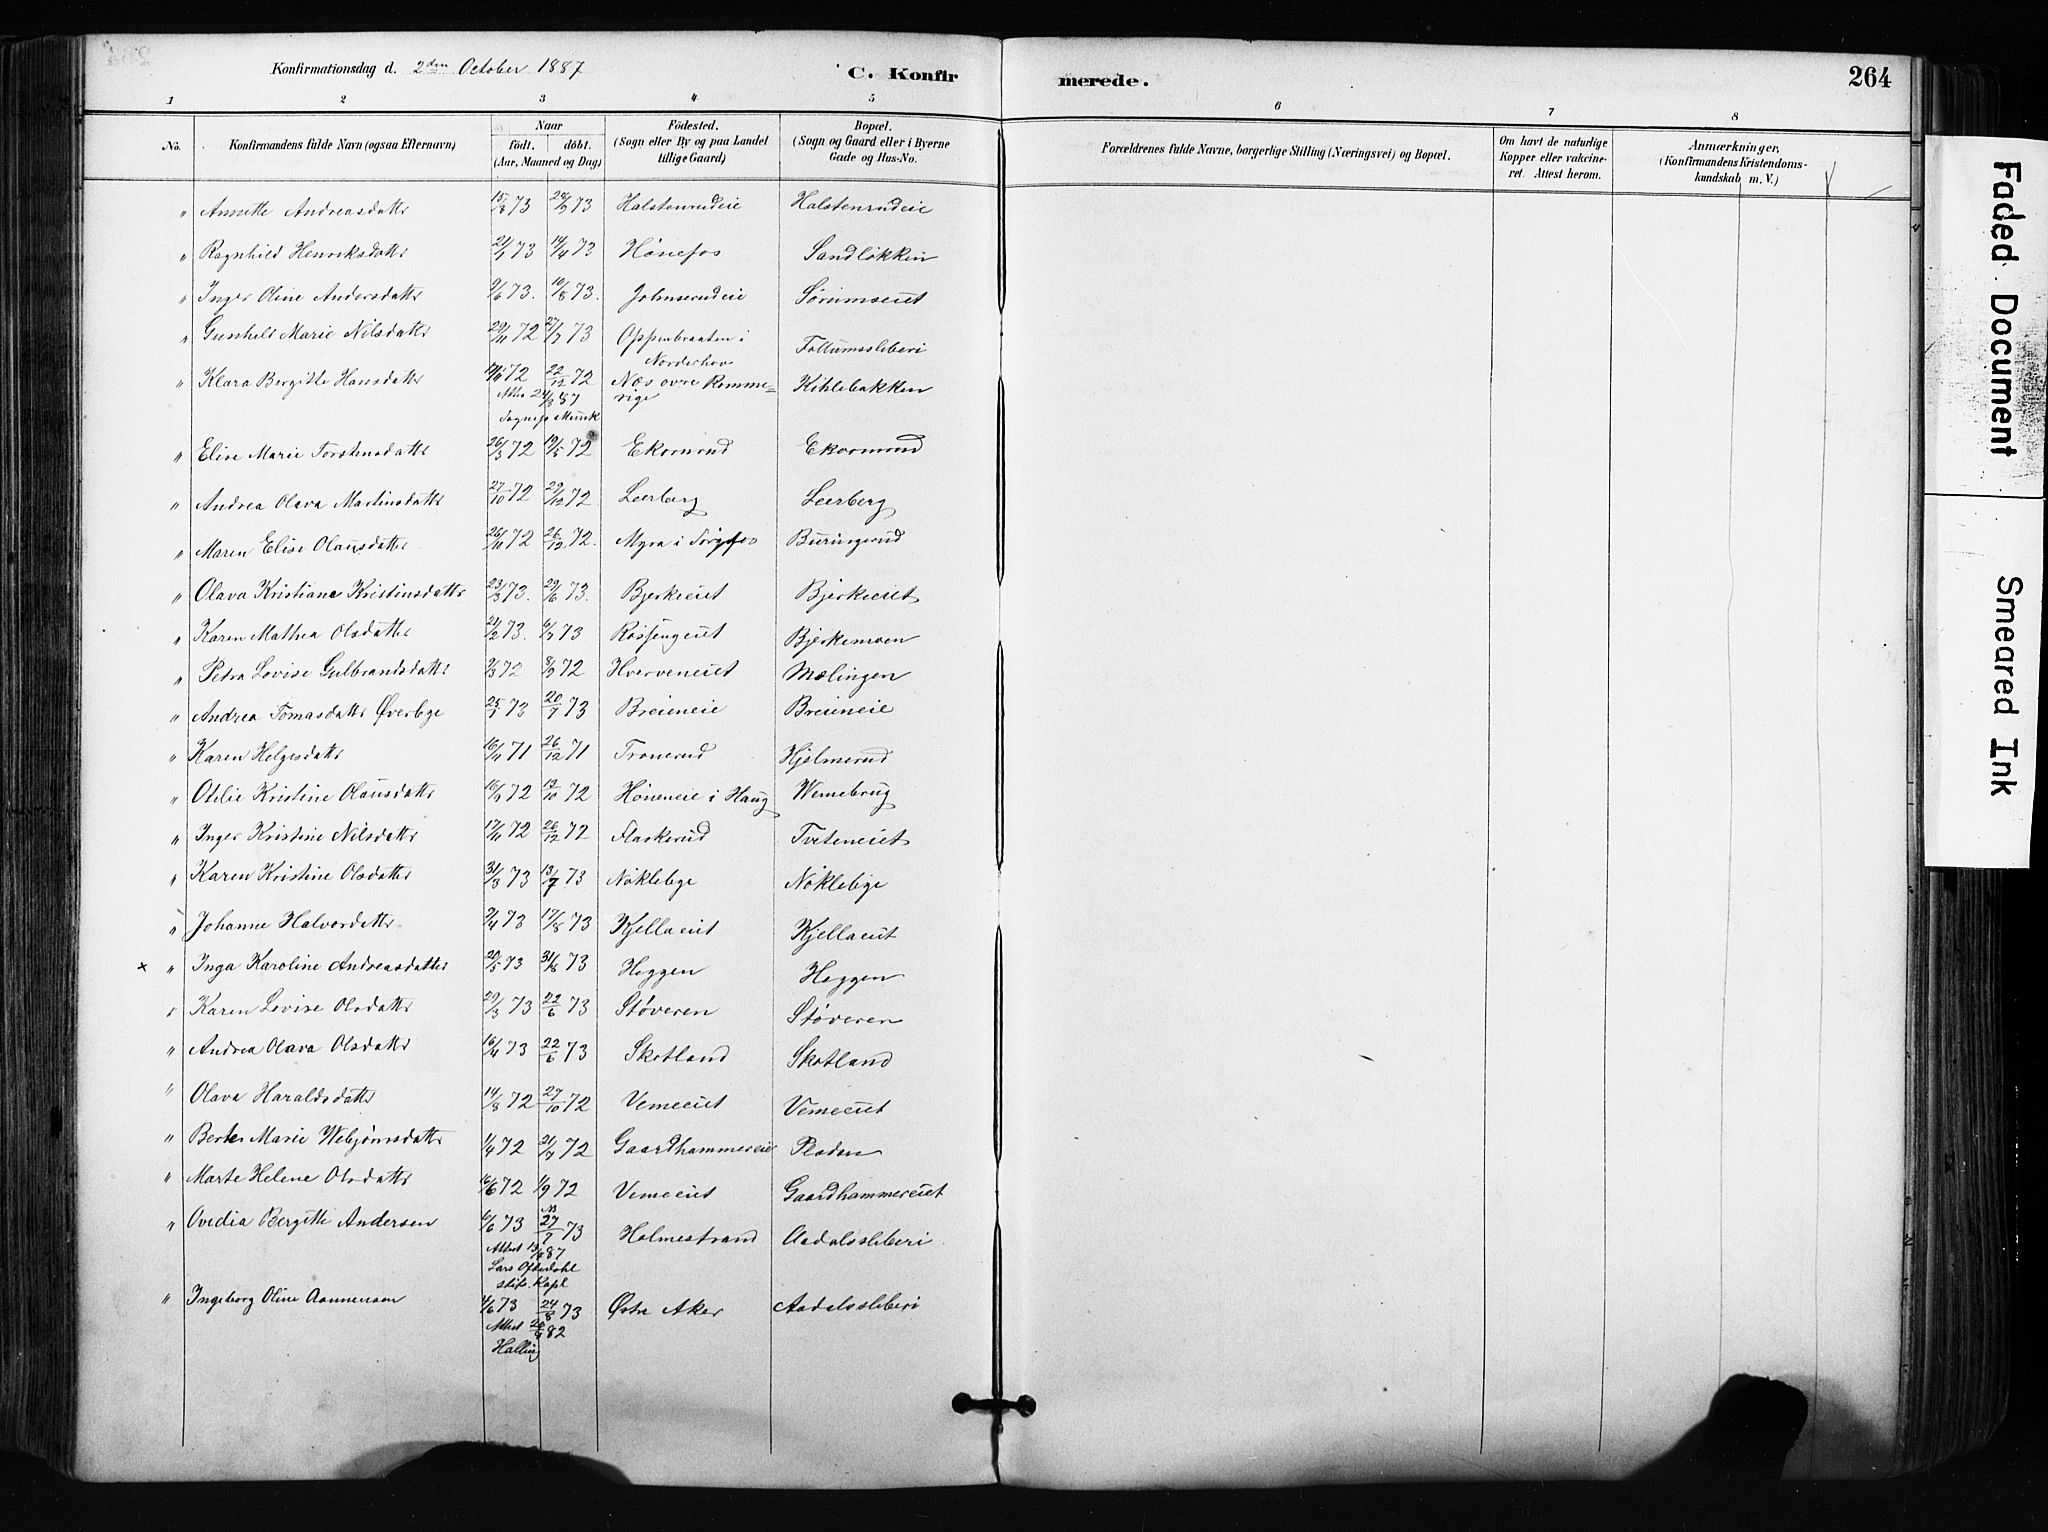 Konfirmationsdag d. 2den October 1887 C. Konfirmerede. 264
1 2 3 4 5 6 7 8
No. Konfirmandens fulde Navn (ogsaa Efternavn) Naar födt. döbt. (Aar, Maaned og Dag) Födested. (Sogn eller By og paa Landet tillige Gaard) Bopæl. (Sogn og Gaard eller i Byerne Gade og Hus-No. Forældrenes fulde Navne, borgerlige Stilling (Næringsvei) og Bopæl. Om havt de naturlige Kopper eller vakcineret. Attest herom. Anmærkninger, (Konfirmandens Kristendomskundskab m. V.)
" Annette Andreasdatter 73 73 Halstenrudeie Halstenrudeie
" Ragnhild Henriksdatter 73 14/4 73 Hönefos Sandlökken
" Inger Oline Andersdatter 9/6 73. 10/8 73. Johnsrudeie Sörumseiet
" Gunhild Marie Nilsdatter 29/11 72 27/7 73 Oppenbraaten i Norderhov Tollumssleberi
" Klara Bergitte Hansdatter 72 22/12 72 Næs ovre Rommerige Kihlebakken
Sognep. Munk
" Elise Marie Torstensdatter 26/3 72 19/5 72 Ekornrud Ekornrud
" Andrea Olava Martinsdatter 27/10 72 29/12 72 Leerberg Leerberg
" Maren Elise Olausdatter 26/10 72 26/12 72. Myra i Buringerud
" Olava Kristiane Kristinsdatter 23/3 73. 29/6 73. Bjerkeeiet Bjerkeeiet
" Karen Mathea Olsdatter 21/2 73. 6/7 73 Rössengeiet Bjerkemoen
" Petra Lovise Gulbrandsdatter 72 72 Hverveneiet Mælingen
" Andrea Tomasdatter Øverbye 25/1 73 20/7 73 Breieneie Breieneie
" Karen Helgesdatter 16/11 71 26/12 71 Tronerud Hjelmerud
" Otilie Kristine Olausdatter 72 13/10 72 Höneneie i Haug Wemebrug
" Inger Kristine Nilsdatter 17/11 72 26/12 72 Flaskerud Tveteneiet
" Karen Kristine Olsdatter 31/3 73 13/7 73 Nöklebye Nöklebye
" Johanne Halvordatter 9/4 73 17/8 73 Kjellaeiet Kjellaeiet
x " Inga Karoline Andreasdatter 20/5 73 31/8 73 Heggen Heggen
" Karen Lovise Olsdatter 29/3 73 22/6 73 Støveren Støveren
" Andrea Olava Olsdatter 16/4 73 22/6 73 Skotland Skotland
" Olava Haraldsdatter 14/8 72 27/10 72 Vemeeiet Vemeeiet
" Marie Webjörnsdatter 1/4 72 21/7 72 Gaardhammereie Pladsen
" Marte Helene Olsdatter 16/6 72 1/9 72 Vemeeiet Gaardhammereiet
" Ovedia Bergitte Andersen 6/6 73 27/7 73 Holmestrand Aadalssleberi
Attest 87
Lars Oftedahl
stift. Kapl
" Ingeborg Oline Aannensen 4/6 73 24/8 73 Østre Aker Aadalssleberi
Attest 82
Halling
Faded Document
Smeared Ink